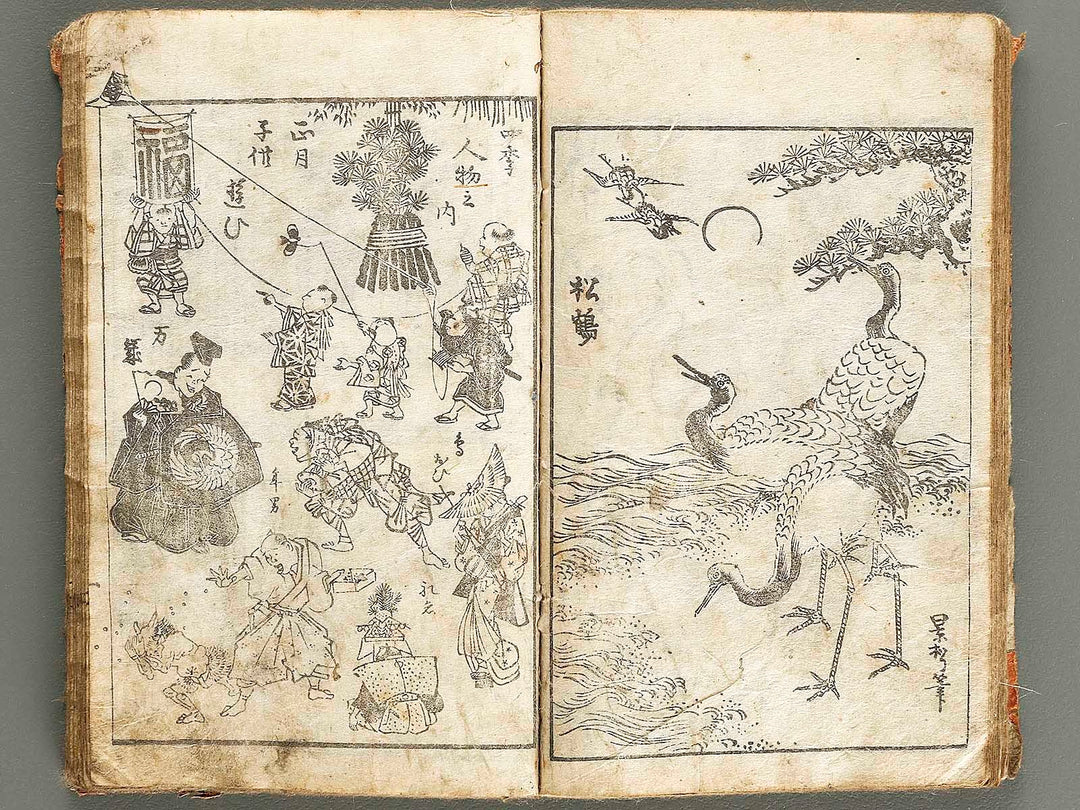 松鶴
景松筆
四季
人物之
内
正月
子供
遊び
福
万
歳
鳥おひ
年男
礼者